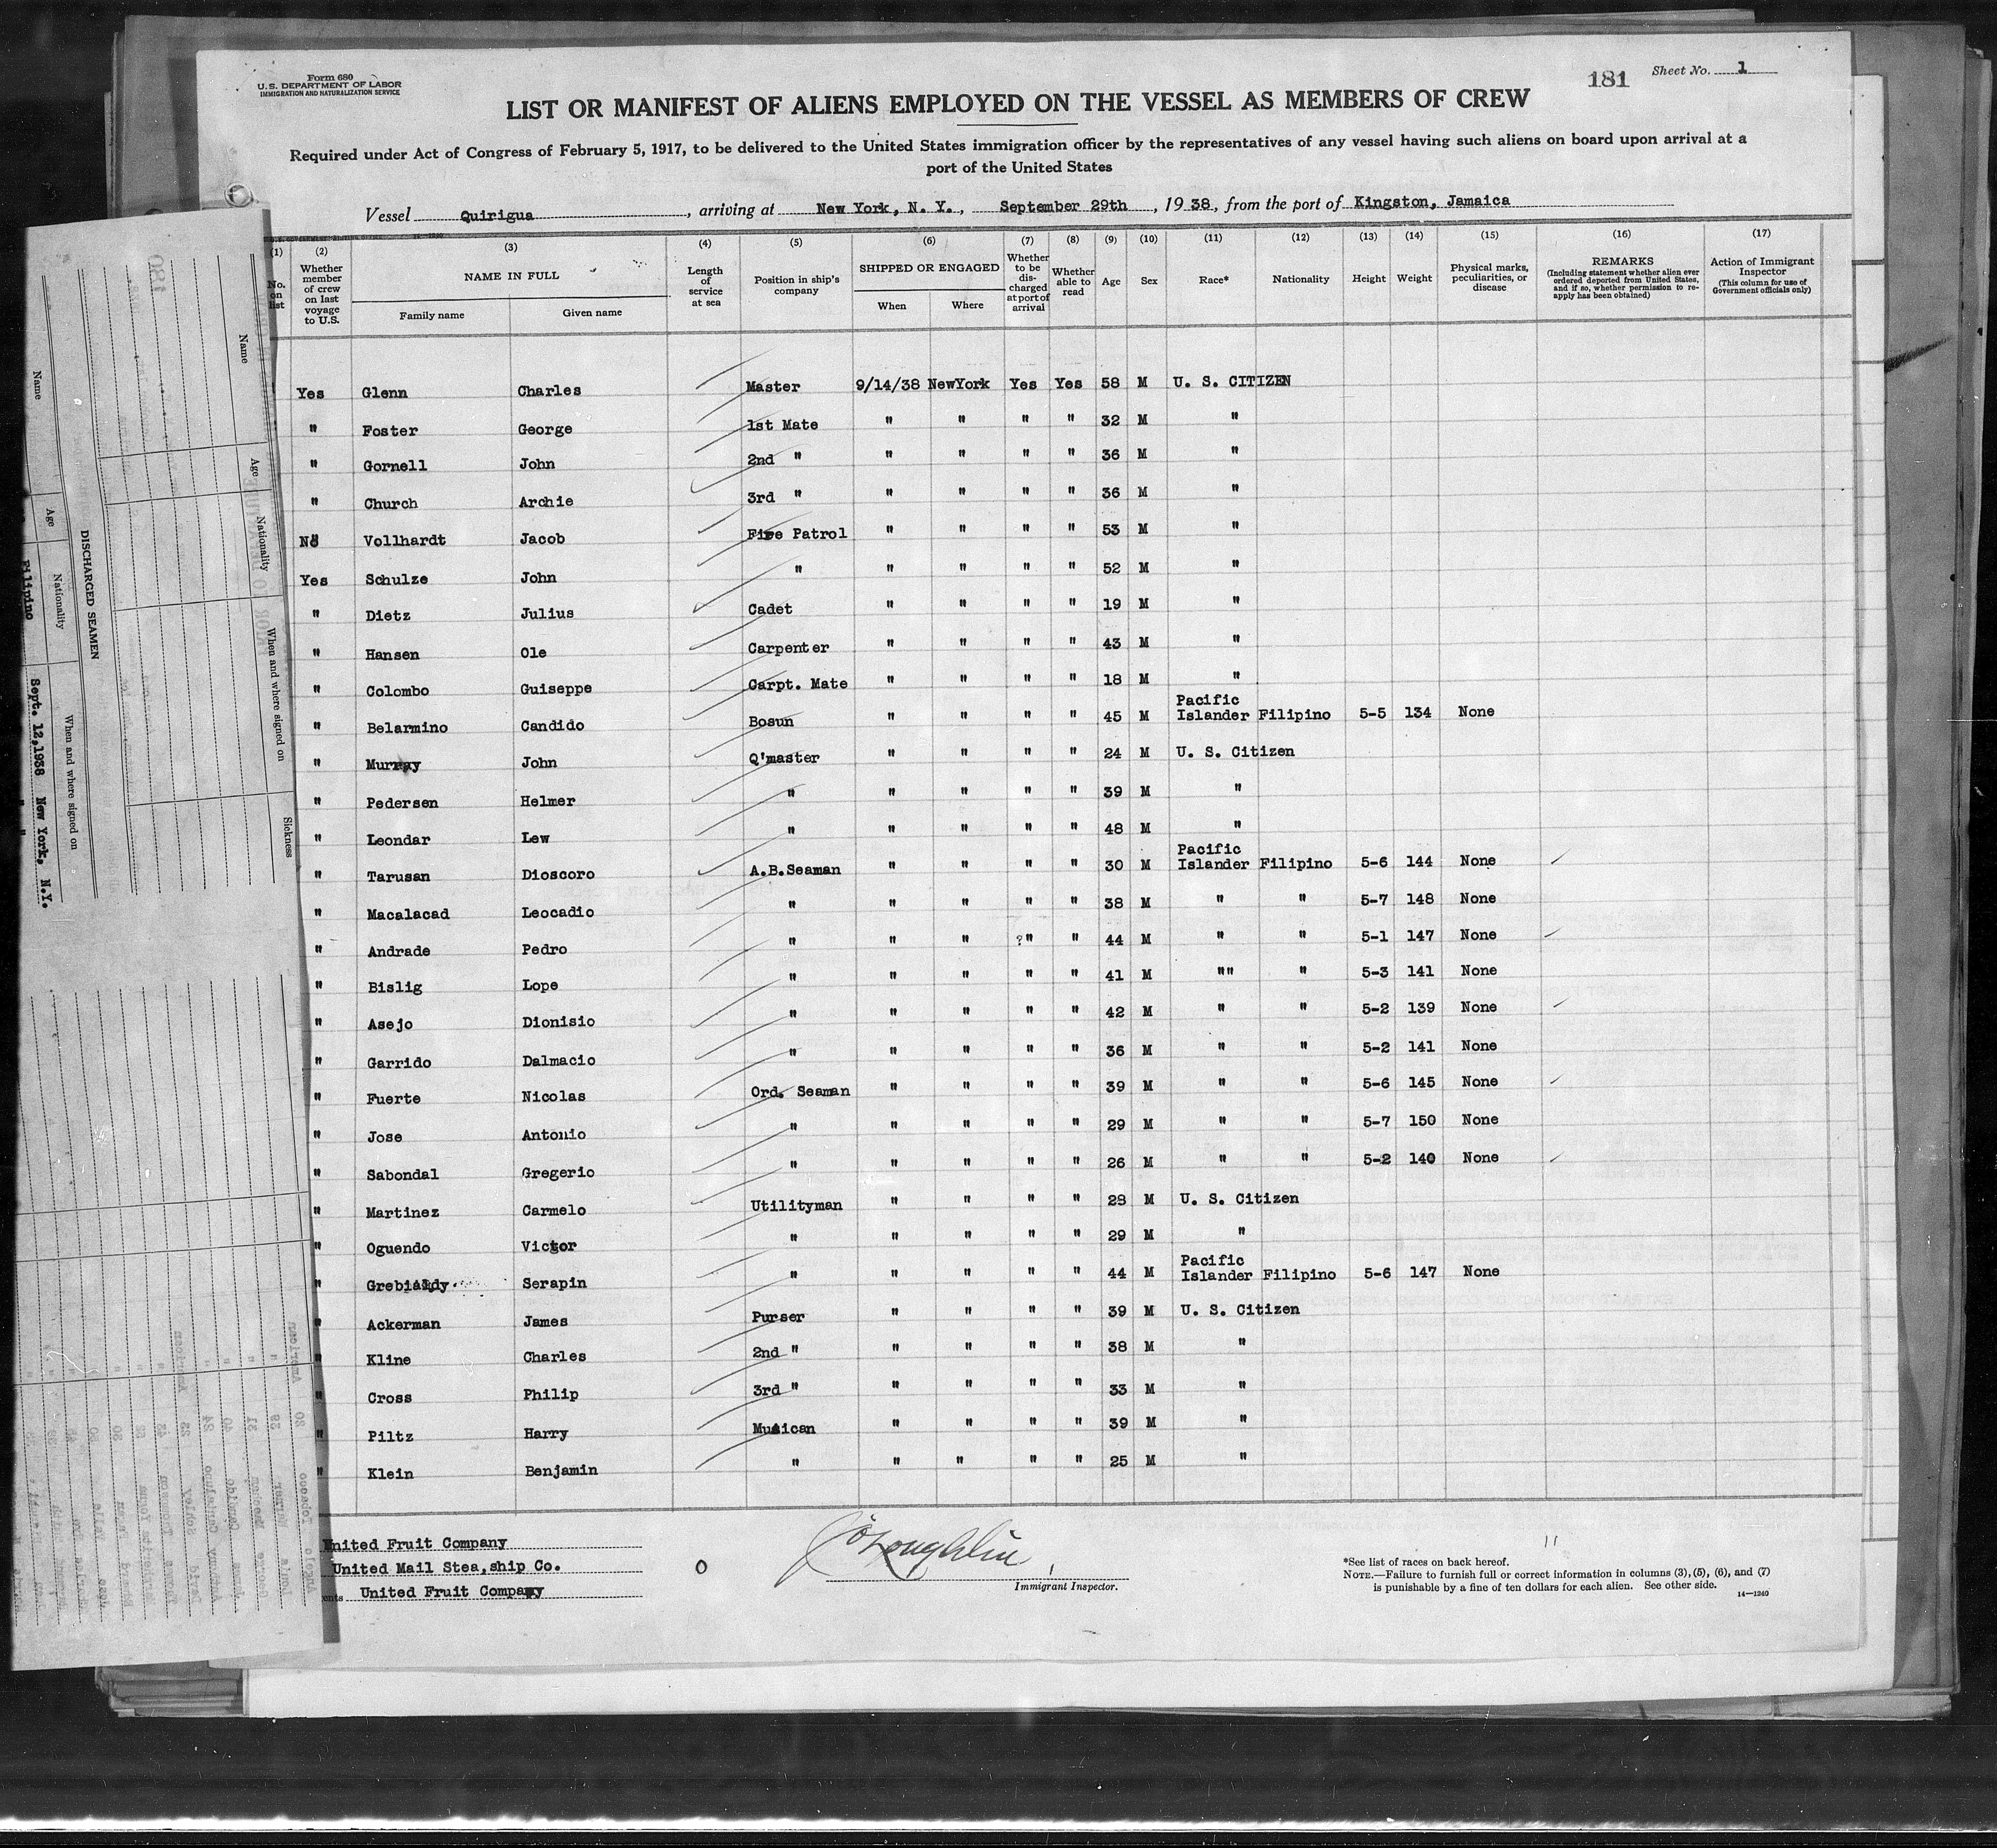 Form 680
U. S. DEPARTMENT OF LABOR
IMMIGRATION AND NATURALIZATION SERVICE
181
Sheet No. 1
LIST OR MANIFEST OF ALIENS EMPLOYED ON THE VESSEL AS MEMBERS OF CREW
Required under Act of Congress of February 5, 1917, to be delivered to the United States immigration officer by the representatives of any vessel having such aliens on board upon arrival at a
port of the United States
Vessel Quirigua, arriving at New York, N. Y., September 29th, 1938, from the port of Kingston, Jamaica
(1) (2) (3) (4) (5) (6) (7) (8) (9) (10) (11) (12) (13) (14) (15) (16) (17)
No. on list
Whether member of crew on last voyage to U.S.
NAME IN FULL
Family name
Given name
Length of service at sea
Position in ship's company
SHIPPED OR ENGAGED
When
Where
Whether to be discharged at port of arrival
Whether able to read
Age
Sex
Race*
Nationality
Height
Weight
Physical marks, peculiarities, or disease
REMARKS
(Including statement whether alien ever ordered deported from United States, and if so, whether permission to reapply has been obtained)
Action of Immigrant Inspector
(This column for use of Government officials only)
Yes Glenn Charles Master 9/14/38 NewYork Yes Yes 58 M U. S. CITIZEN
" Foster George 1st Mate " " " " 32 M "
" Gornell John 2nd " " " " " 36 M "
" Church Archie 3rd " " " " " 36 M "
No Vollhardt Jacob Fire Patrol " " " " 53 M "
Yes Schulze John " " " " " 52 M "
" Dietz Julius Cadet " " " " 19 M "
" Hansen Ole Carpenter " " " " 43 M "
" Colombo Guiseppe Carpt. Mate " " " " 18 M "
" Belarmino Candido Bosun " " " " 45 M Pacific Islander Filipino 5-5 134 None
" Murray John Q'master " " " " 24 M U. S. Citizen
" Pedersen Helmer " " " " " 39 M "
" Leondar Lew " " " " " 48 M "
" Tarusan Dioscoro A.B.Seaman " " " " 30 M Pacific Islander Filipino 5-6 144 None
" Macalacad Leocadio " " " " " 38 M " " 5-7 148 None
" Andrade Pedro " " " ?" " 44 M " " 5-1 147 None
" Bislig Lope " " " " " 41 M "" " 5-3 141 None
" Asejo Dionisio " " " " " 42 M " " 5-2 139 None
" Garrido Dalmacio " " " " " 36 M " " 5-2 141 None
" Fuerte Nicolas Ord. Seaman " " " " 39 M " " 5-6 145 None
" Jose Antonio " " " " " 29 M " " 5-7 150 None
" Sabondal Gregerio " " " " " 26 M " " 5-2 140 None
" Martinez Carmelo Utilityman " " " " 28 M U. S. Citizen
" Oguendo Victor " " " " " 29 M "
" Serapin " " " " " 44 M Pacific Islander Filipino 5-6 147 None
" Ackerman James Purser " " " " 39 M U. S. Citizen
" Kline Charles 2nd " " " " " 38 M "
" Cross Philip 3rd " " " " " 33 M "
" Piltz Harry Musican " " " " 39 M "
" Klein Benjamin " " " " " 25 M "
United Fruit Company
United Mail Stea,ship Co.
United Fruit Company
0
O'Loughlin
Immigrant Inspector.
11
*See list of races on back hereof.
NOTE.—Failure to furnish full or correct information in columns (3), (5), (6), and (7)
is punishable by a fine of ten dollars for each alien. See other side.
14—1240
180
Name
Age
Nationality
When and where signed on
Sickness
DISCHARGED SEAMEN
Name
Age
Nationality
When and where signed on
Filipino
Sept. 12,1938 New York, N.Y.